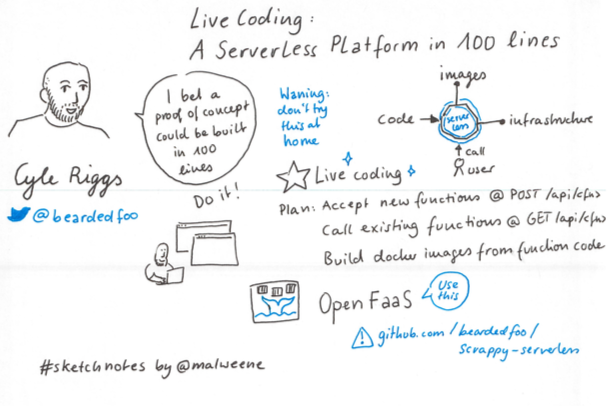 Live Coding:
A Serverless Platform in 100 lines
I bet a
proof of concept
could be built
in 100
lines
Waning:
don't try
this at
home
images
code
server
less
infrastructure
call
user
Cyle Riggs
@beardedfoo
Do it!
Live coding
Plan: Accept new functions @ POST /api/cfns
Call existing functions @ GET /api/cfns
Build docker images from function code
OpenFaaS
Use
this
github.com/beardedfoo/
scrappy-serverless
#sketchnotes by @malweene